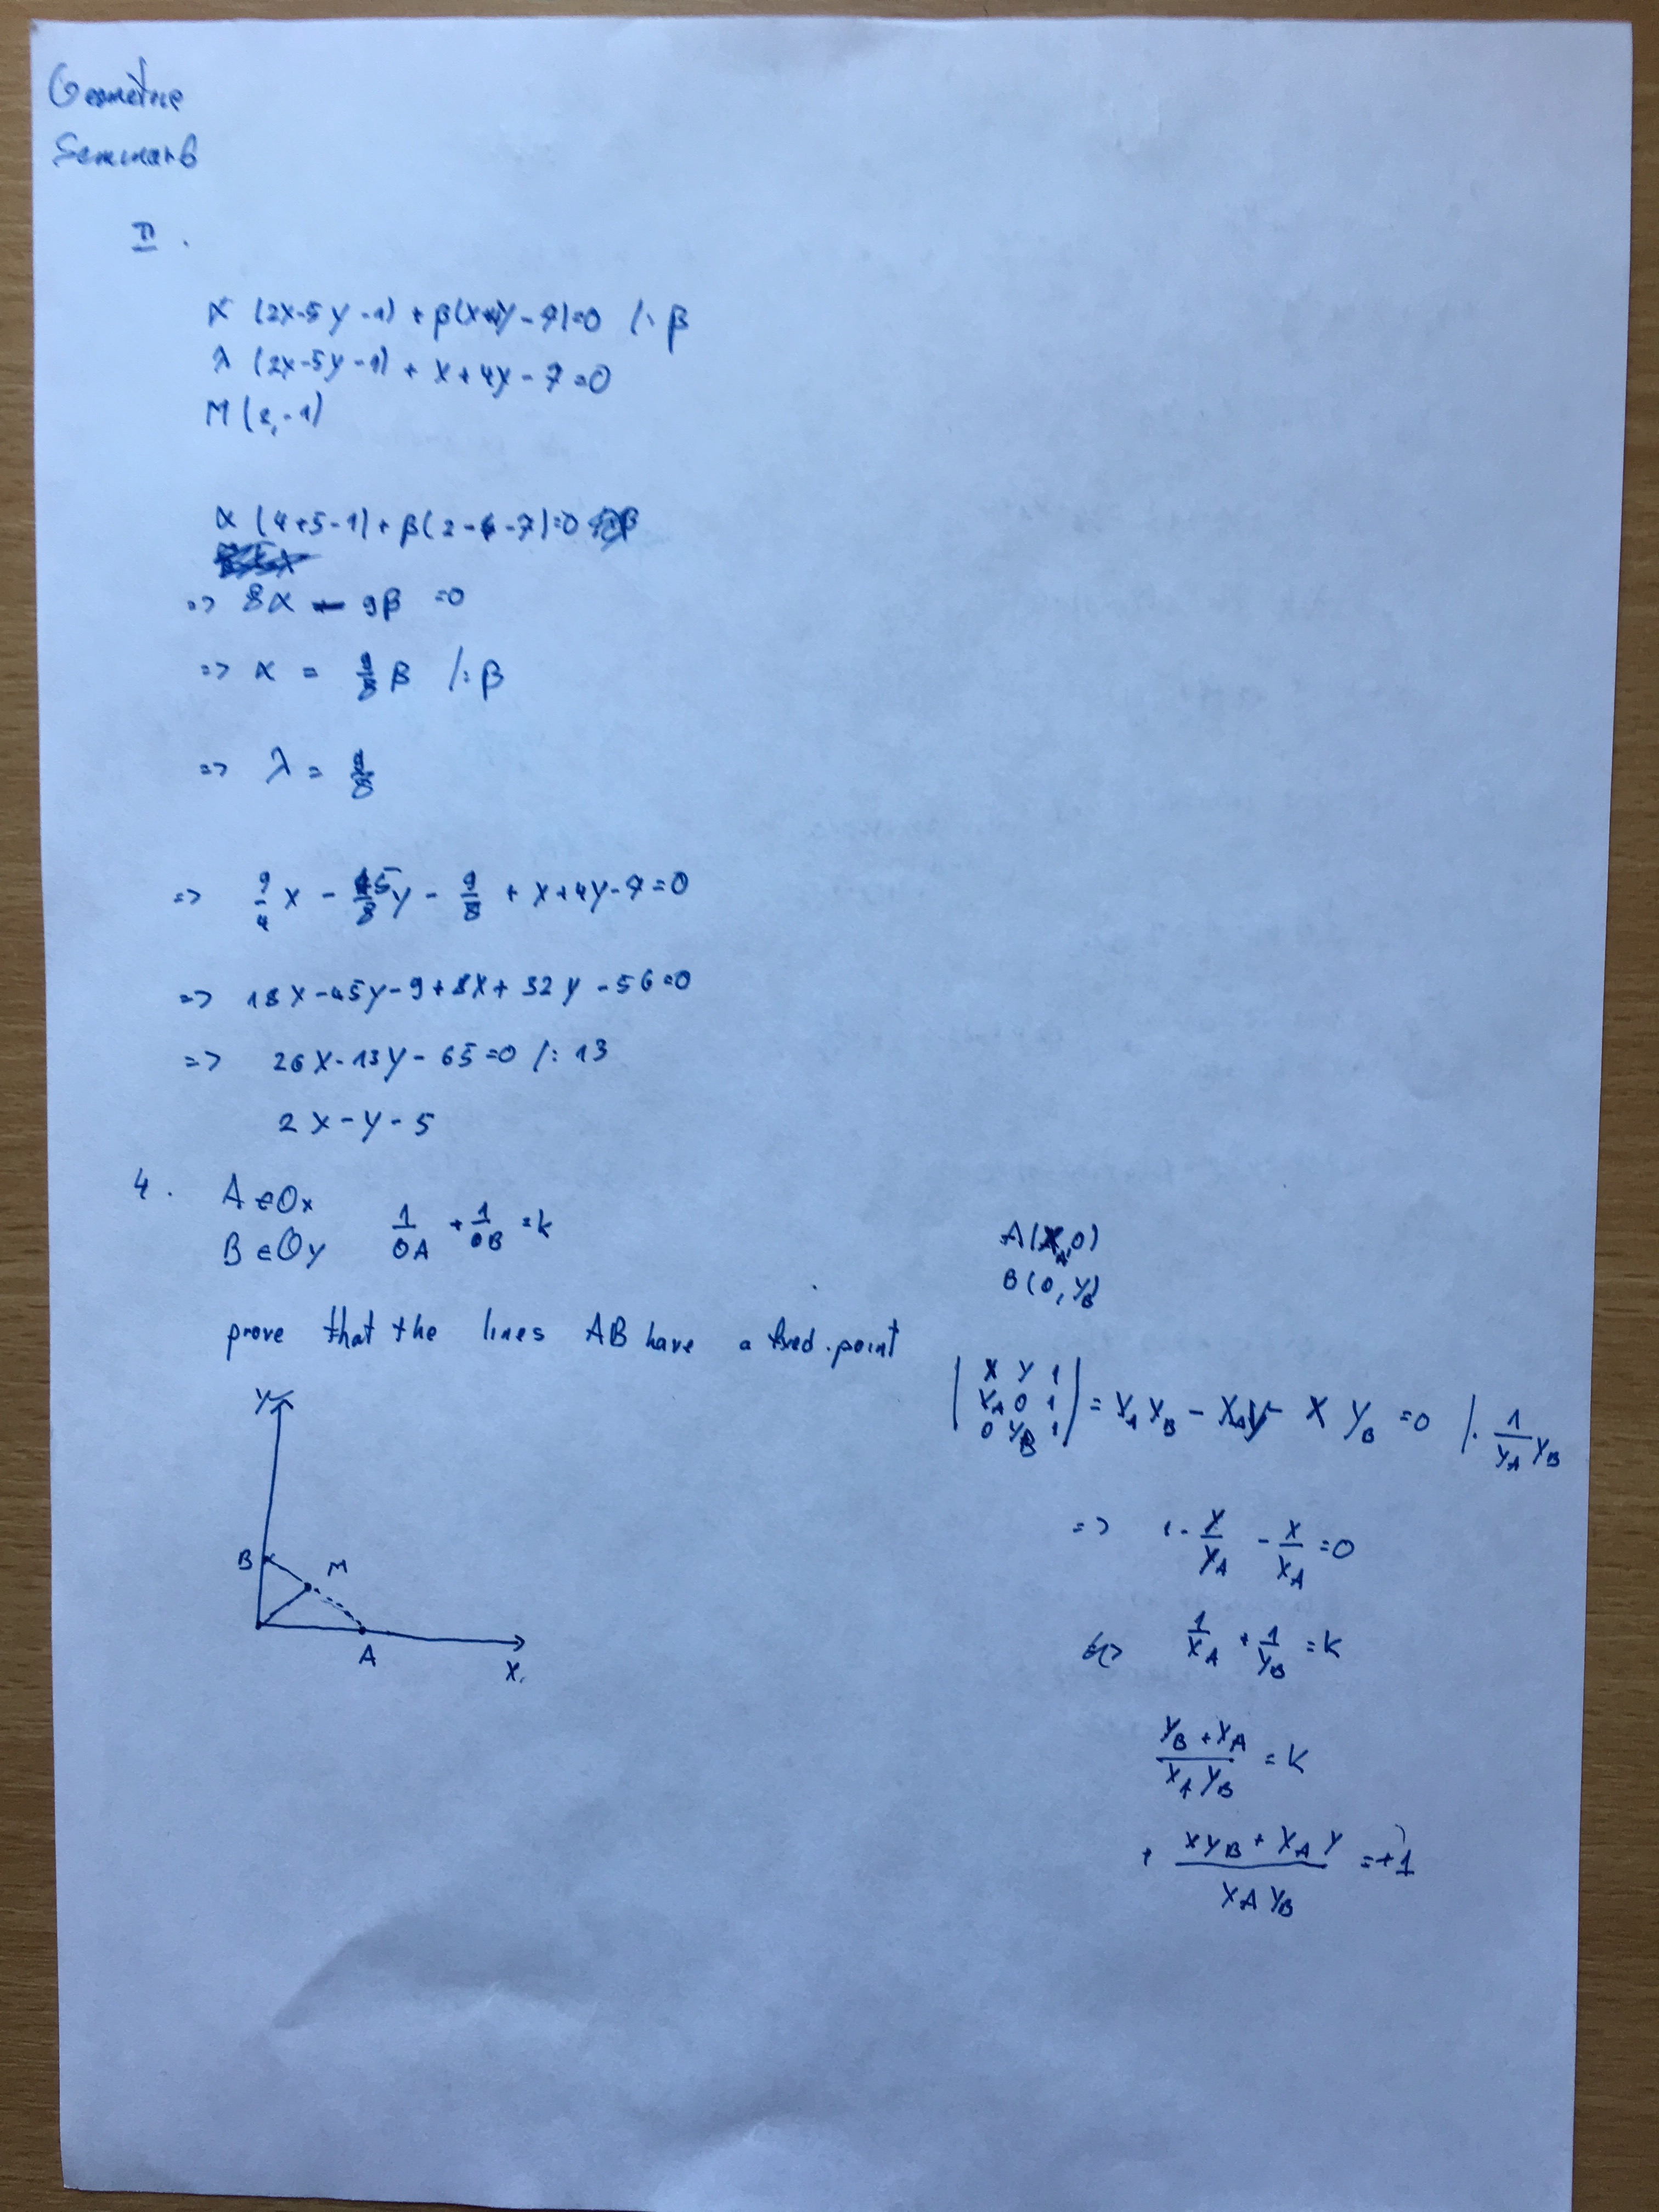 Geometrie
Seminar 6
II .
α (2x-5y-1) + β(x+4y-7)=0 /: β
λ (2x-5y-1) + x+4y-7=0
M(2,-1)
α (4+5-1)+ β(2-4-7)=0
=> 8α - 9β =0
=> α = 9/8 β /: β
=> λ = 9/8
=> 9/4 x - 45/8 y - 9/8 + x+4y-7=0
=> 18x-45y-9+8x+32y-56=0
=> 26x-13y-65=0 /: 13
2x-y-5
4. A∈Ox
B∈Oy
1/OA + 1/OB = k
prove that the lines AB have a fixed point
y
B
M
A
x
A(x_A,0)
B(0,y_B)
| x y 1 |
| x_A 0 1 |
| 0 y_B 1 | = x_A y_B - x_A y - x y_B =0 /· 1/(x_A y_B)
=> 1 - y/y_A - x/x_A =0
<=> 1/x_A + 1/y_B = k
(y_B + x_A)/(x_A y_B) = k
+ (x y_B + x_A y)/(x_A y_B) = +1